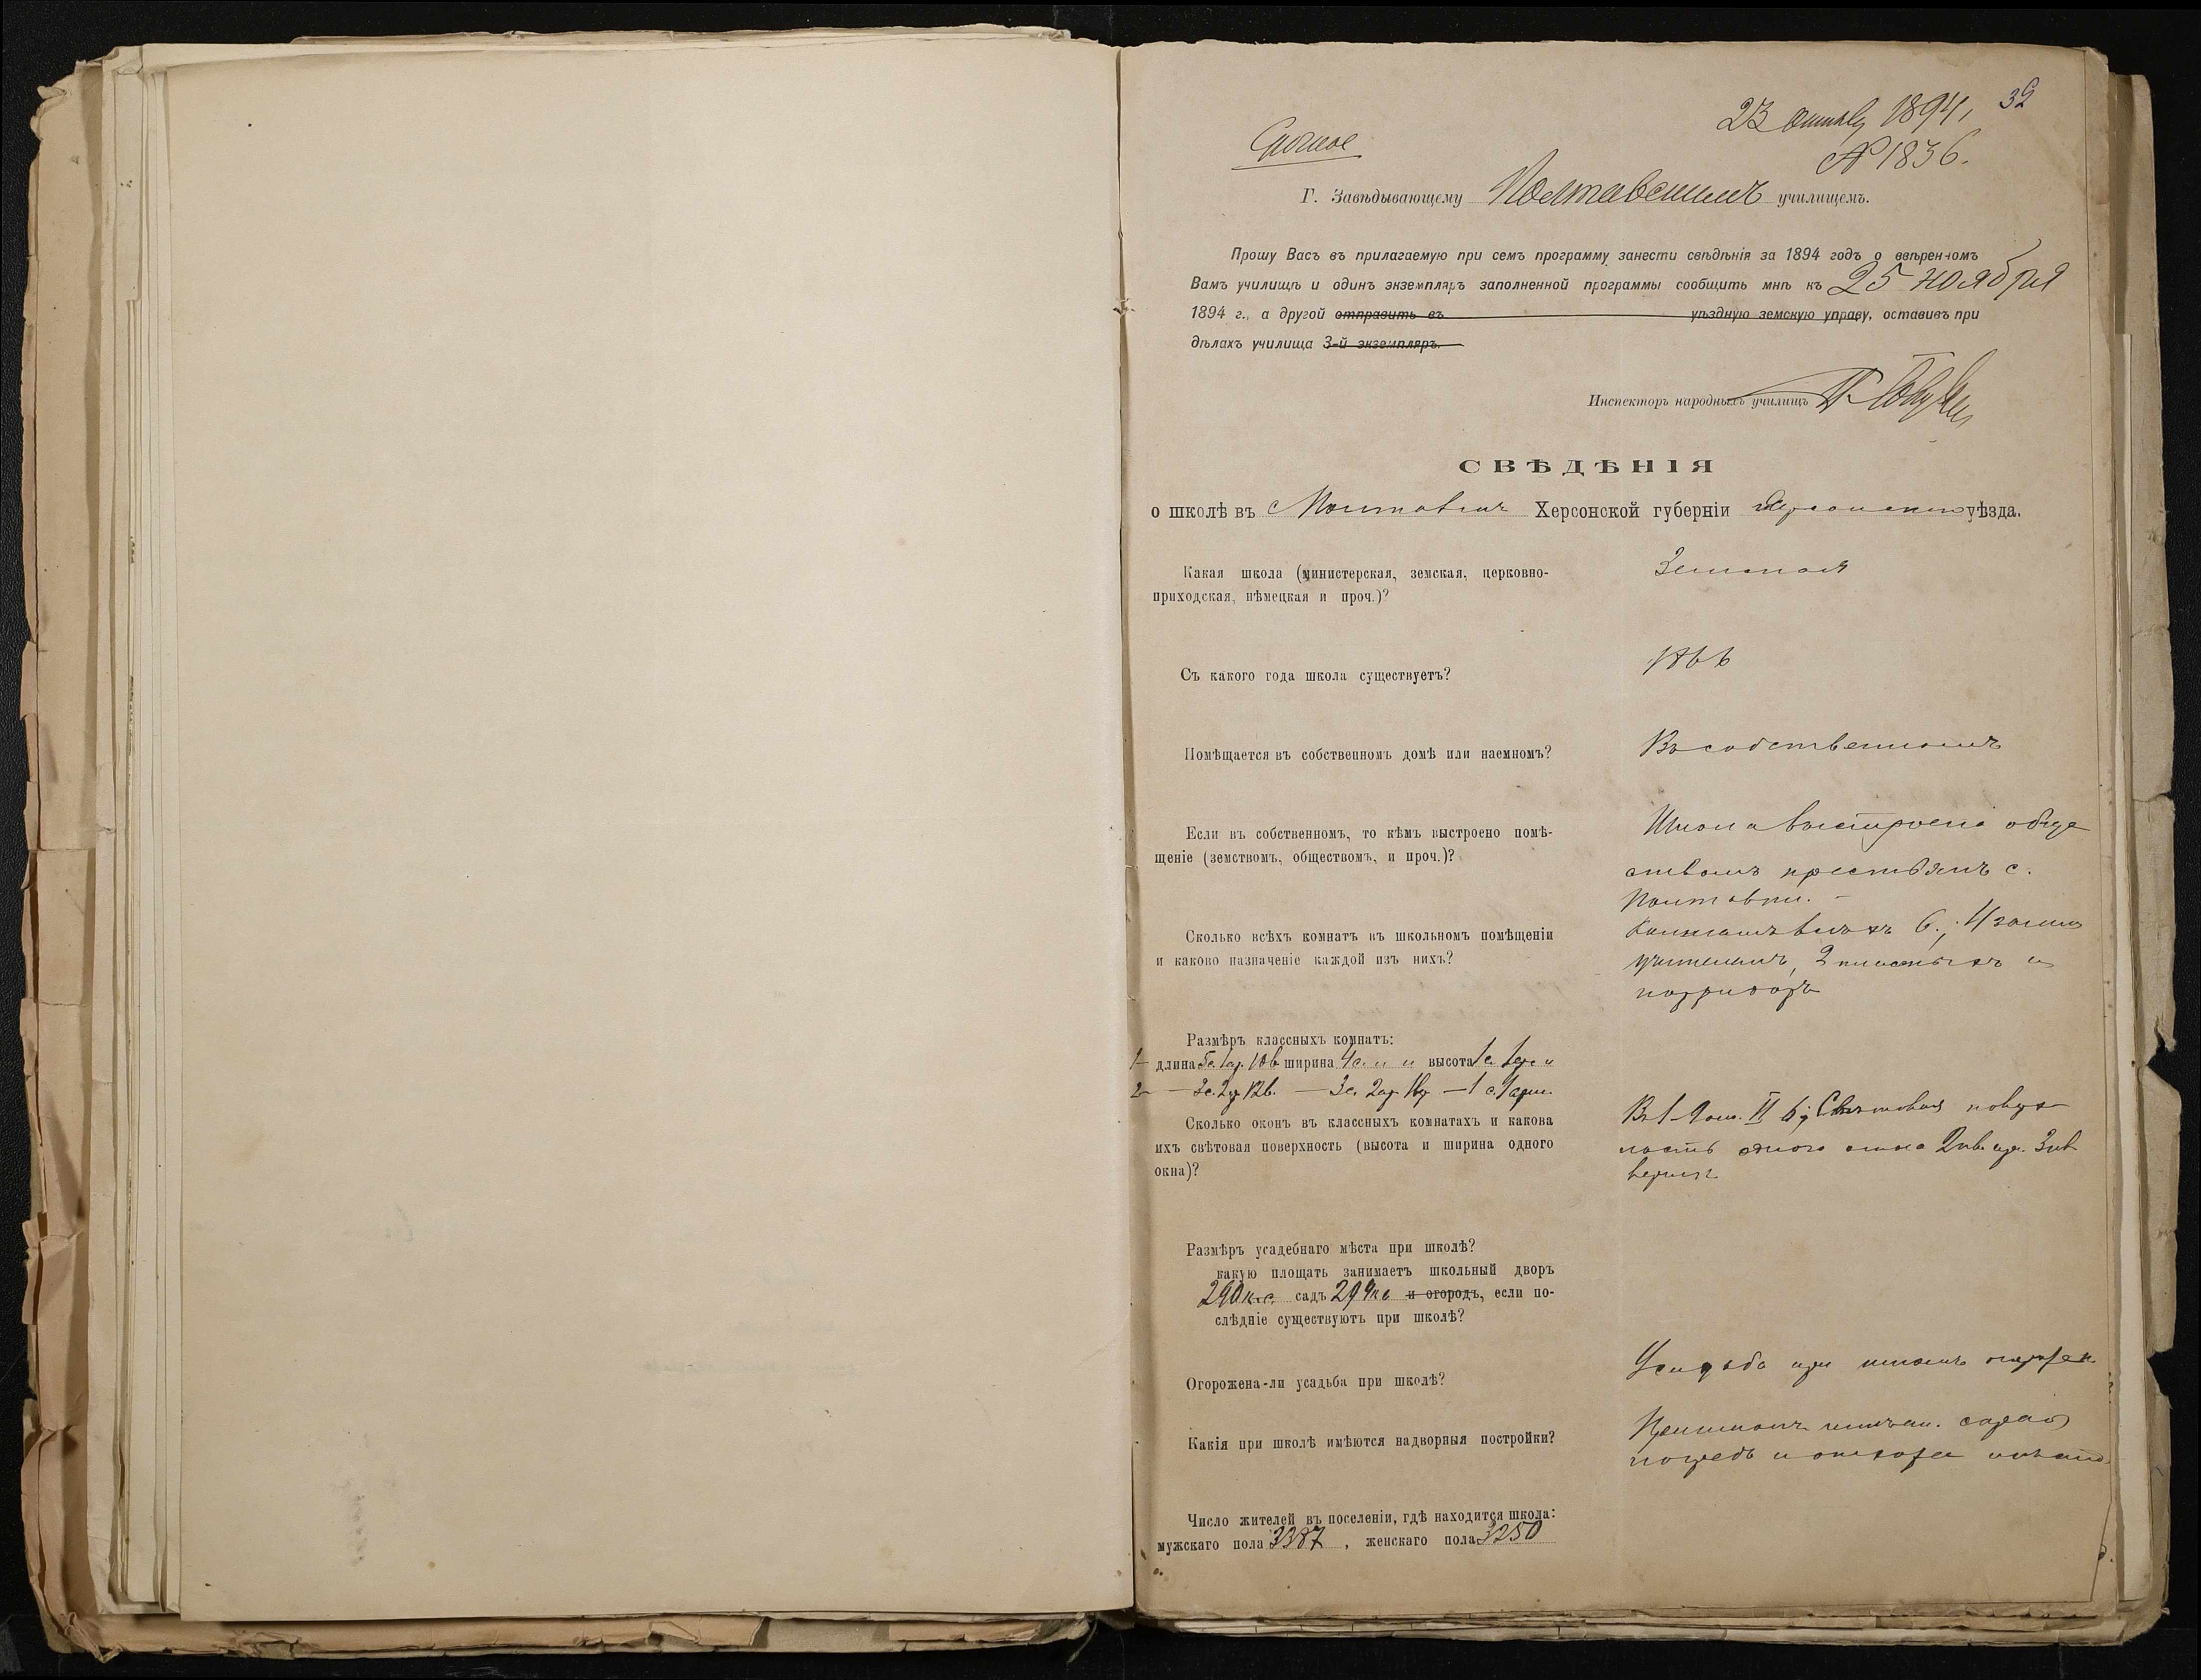 39
23 октяб 1894,
№ 1836.
Срочное
Г. Завѣдывающему Полтавскимъ училищемъ.
Прошу Васъ въ прилагаемую при семъ программу занести свѣдѣнія за 1894 годъ о ввѣренномъ
Вамъ училищѣ и одинъ экземпляръ заполненной программы сообщить мнѣ къ 25 ноября
1894 г., а другой отправить въ уѣздную земскую управу, оставивъ при
дѣлахъ училища 3-й экземпляръ.
Инспекторъ народныхъ училищъ
СВѢДѢНІЯ
о школѣ въ с Полтавкѣ Херсонской губерніи Херсонскаго уѣзда.
Какая школа (министерская, земская, церковно-
приходская, нѣмецкая и проч.)?
Земская
Съ какого года школа существуетъ?
1866
Помѣщается въ собственномъ домѣ или наемномъ?
Въ собственномъ
Если въ собственномъ, то кѣмъ выстроено помѣ-
щеніе (земствомъ, обществомъ, и проч.)?
Школа выстроена обще
ствомъ крестьянъ с.
Полтавки. -
Сколько всѣхъ комнатъ въ школьномъ помѣщеніи
и каково назначеніе каждой изъ нихъ?
Комнатъ всѣхъ 6.; 4
учителямъ, 2 классныхъ и
корридоръ
Размѣръ классныхъ комнатъ:
1- длина 5с. 1ар. 10в ширина 4с. " " высота 1с. 1ар "
2- - 3с. 2ар 12в. - 3с. 2ар. - 1 с. 1 арш.
Сколько оконъ въ классныхъ комнатахъ и какова
ихъ свѣтовая поверхность (высота и ширина одного
окна)?
Въ 1- 9 ок. II 6; Свѣтовая поверх
ность одного окна 2 кв. ар. 3 кв
верш.
Размѣръ усадебнаго мѣста при школѣ?
какую площать занимаетъ школьный дворъ
290 к.с. садъ 299 кв и огородъ, если по-
слѣдніе существуютъ при школѣ?
Огорожена-ли усадьба при школѣ?
Усадьба при школѣ огорожен.
Какія при школѣ имѣются надворныя постройки?
сарай
погребъ и отхожее мѣсто
Число жителей въ поселеніи, гдѣ находится школа:
мужскаго пола 3387, женскаго пола 3250